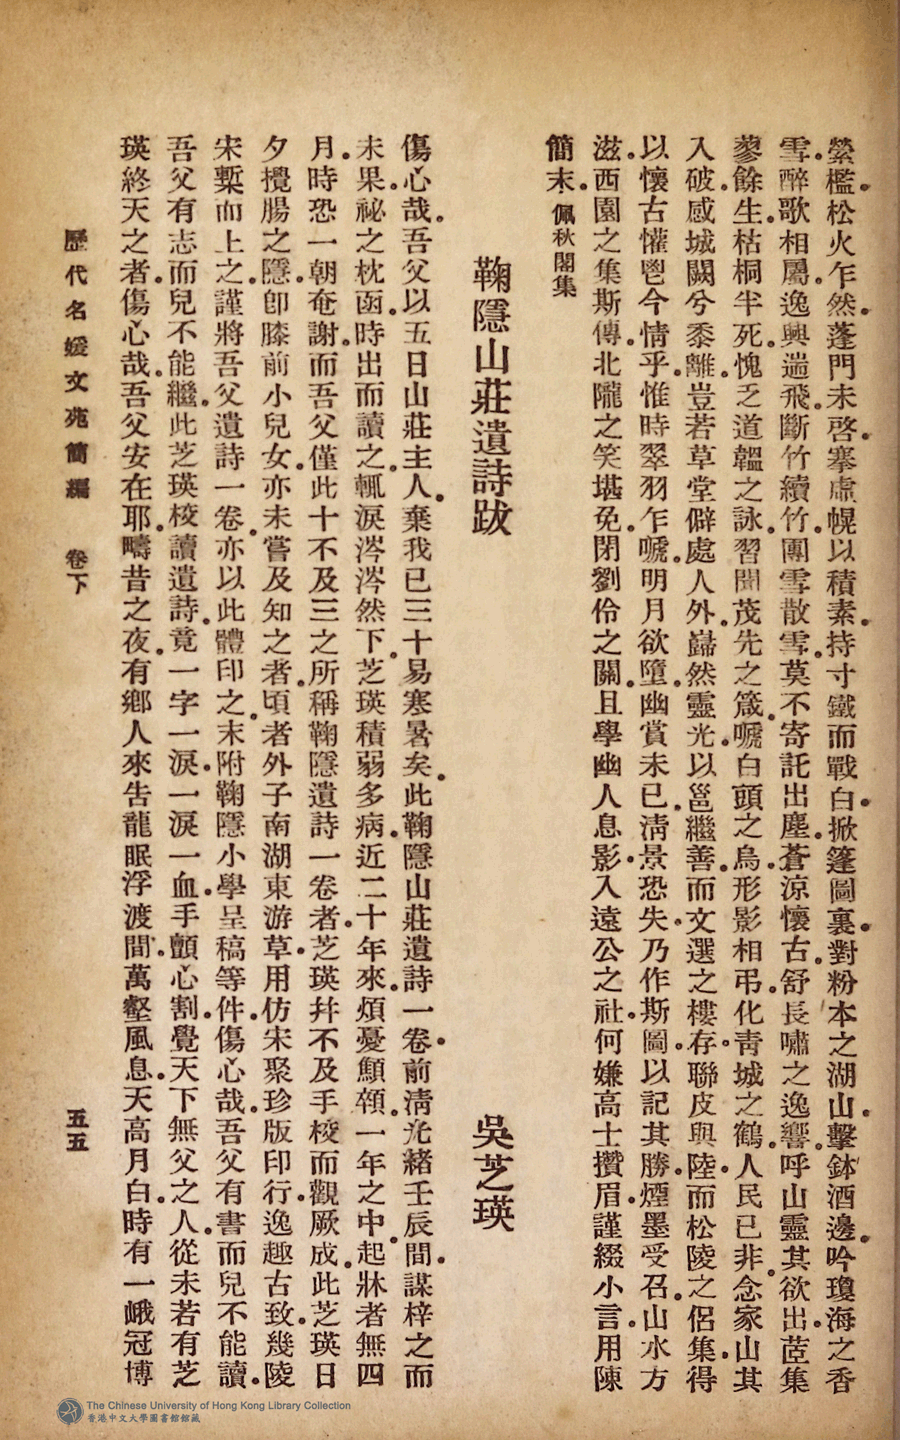 縈檻松火乍然蓬門未啓搴虛幌以積素持寸鐵而戰白掀篷圖裏對粉本之湖山擊鉢酒邊吟瓊海之香
雪醉歌相屬逸興遄飛斷竹續竹團雪散雪莫不寄託出塵蒼涼懷古舒長嘯之逸響呼山靈其欲出茝集
蓼餘生枯桐半死愧乏道韞之詠習聞茂先之箴嗁白頭之烏形影相弔化靑城之鶴人民已非念家山其
入破感城闕兮黍離豈若草堂僻處人外巋然靈光以邕繼善而文選之樓存聯皮與陸而松陵之侶集得
以懷古懽鬯今情乎惟時翠羽乍嗁明月欲墮幽賞未已淸景恐失乃作斯圖以記其勝煙墨受召山水方
滋西園之集斯傳北隴之笑堪免閉劉伶之關且學幽人息影入遠公之社何嫌高士攢眉謹綴小言用陳
簡末 佩秋閣集
鞠隱山莊遺詩跋 吳芝瑛
傷心哉吾父以五日山莊主人棄我已三十易寒暑矣此鞠隱山莊遺詩一卷前淸光緒壬辰間謀梓之而
未果祕之枕函時出而讀之輒淚涔涔然下芝瑛積弱多病近二十年來煩憂顦顇一年之中起牀者無四
月時恐一朝奄謝而吾父僅此十不及三之所稱鞠隱遺詩一卷者芝瑛幷不及手校而觀厥成此芝瑛日
夕攪腸之隱卽膝前小兒女亦未嘗及知之者頃者外子南湖東游草用仿宋聚珍版印行逸趣古致幾陵
宋槧而上之謹將吾父遺詩一卷亦以此體印之末附鞠隱小學呈稿等件傷心哉吾父有書而兒不能讀
吾父有志而兒不能繼此芝瑛校讀遺詩竟一字一淚一淚一血手顫心割覺天下無父之人從未若有芝
瑛終天之者傷心哉吾父安在耶疇昔之夜有鄕人來吿龍眠浮渡間萬壑風息天高月白時有一峨冠博
歷代名媛文苑簡編 卷下 五五
The Chinese University of Hong Kong Library Collection
香港中文大學圖書館館藏